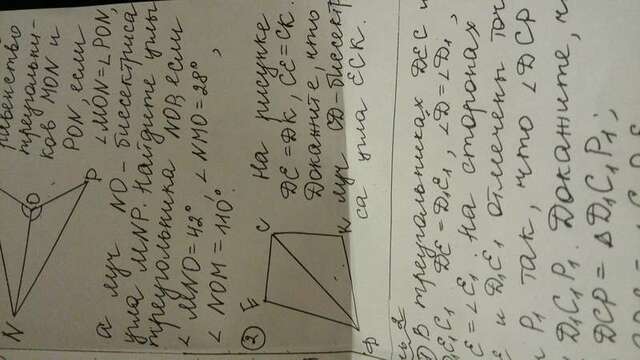 N
O
P
равенство
треугольни-
ков MON и
PON, если
∠MON=∠PON,
а луч NO – биссектриса
угла MNP. Найдите углы
треугольника NOP, если
∠ MNO=42°, ∠NMO=28°,
∠ NOM=110°.
2
E
C
K
D
На рисунке
DE=DK, CE=CK.
Докажите, что
луч CD–биссект
са угла ECK.
2
В треугольниках DEC и
D₁E₁C₁ DE=D₁E₁, ∠D=∠D₁,
E=∠E₁. На сторонах
и D₁E₁ отмечены точ
P₁ так, что ∠DCP
D₁C₁P₁. Докажите, ч
DCP = △D₁C₁P₁;